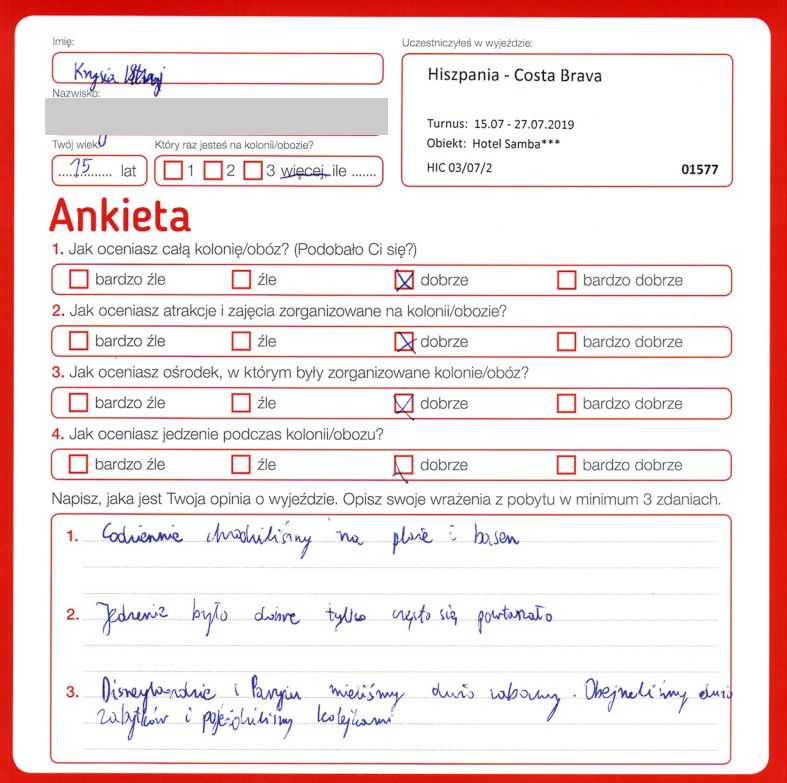 Imię:
Krysia
Nazwisko:
Twój wiek:
15 lat
Który raz jesteś na kolonii/obozie?
1 2 3 więcej, ile .......
Uczestniczyłeś w wyjeździe:
Hiszpania - Costa Brava
Turnus: 15.07 - 27.07.2019
Obiekt: Hotel Samba***
HIC 03/07/2 01577
Ankieta
1. Jak oceniasz całą kolonię/obóz? (Podobało Ci się?)
bardzo źle źle dobrze bardzo dobrze
2. Jak oceniasz atrakcje i zajęcia zorganizowane na kolonii/obozie?
bardzo źle źle dobrze bardzo dobrze
3. Jak oceniasz ośrodek, w którym były zorganizowane kolonie/obóz?
bardzo źle źle dobrze bardzo dobrze
4. Jak oceniasz jedzenie podczas kolonii/obozu?
bardzo źle źle dobrze bardzo dobrze
Napisz, jaka jest Twoja opinia o wyjeździe. Opisz swoje wrażenia z pobytu w minimum 3 zdaniach.
1. Codziennie chodziliśmy na plaże i basen
2. Jedzenie było dobre tylko często się powtarzało
3. Disneylandzie i Paryżu mieliśmy dużo zabawy. Obejrzeliśmy dużo
zabytków i pojeździliśmy kolejkami